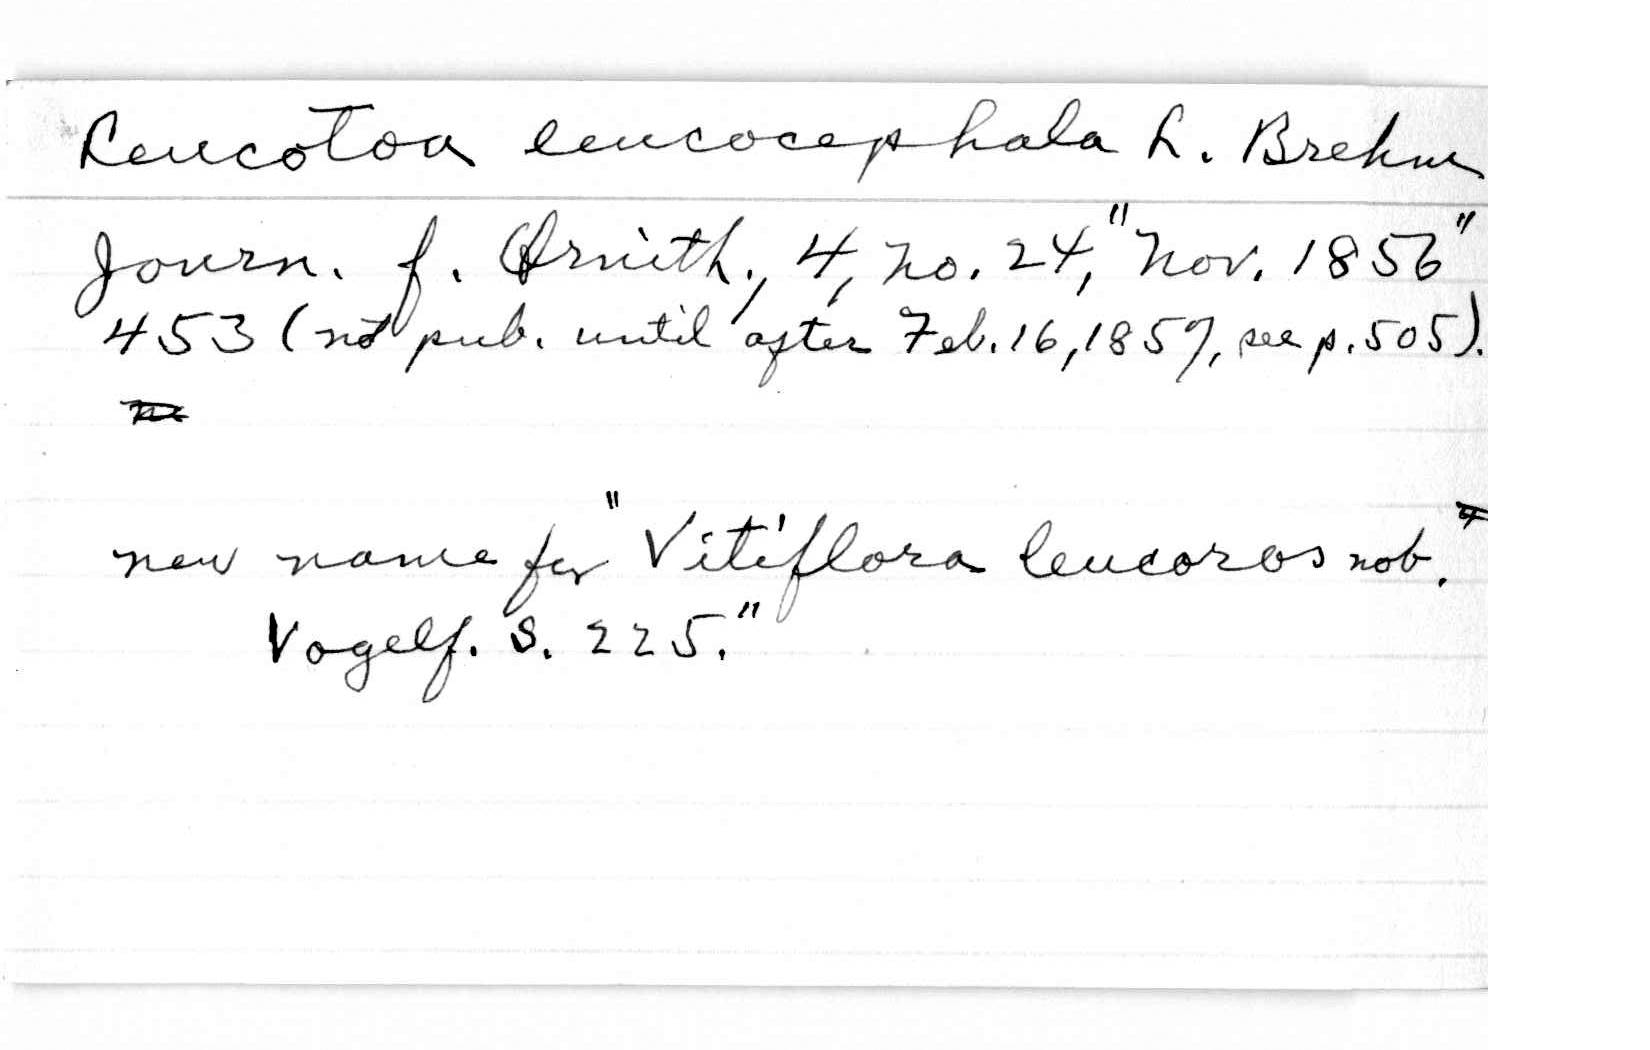 Leucotoa leucocephala L. Brehm
Journ. f. Ornith., 4, no. 24, "Nov. 1856"
453 (not pub. until after Feb. 16, 1857, see p. 505).
new name for "Vitiflora leucoros nob.
Vogelf. S. 225."